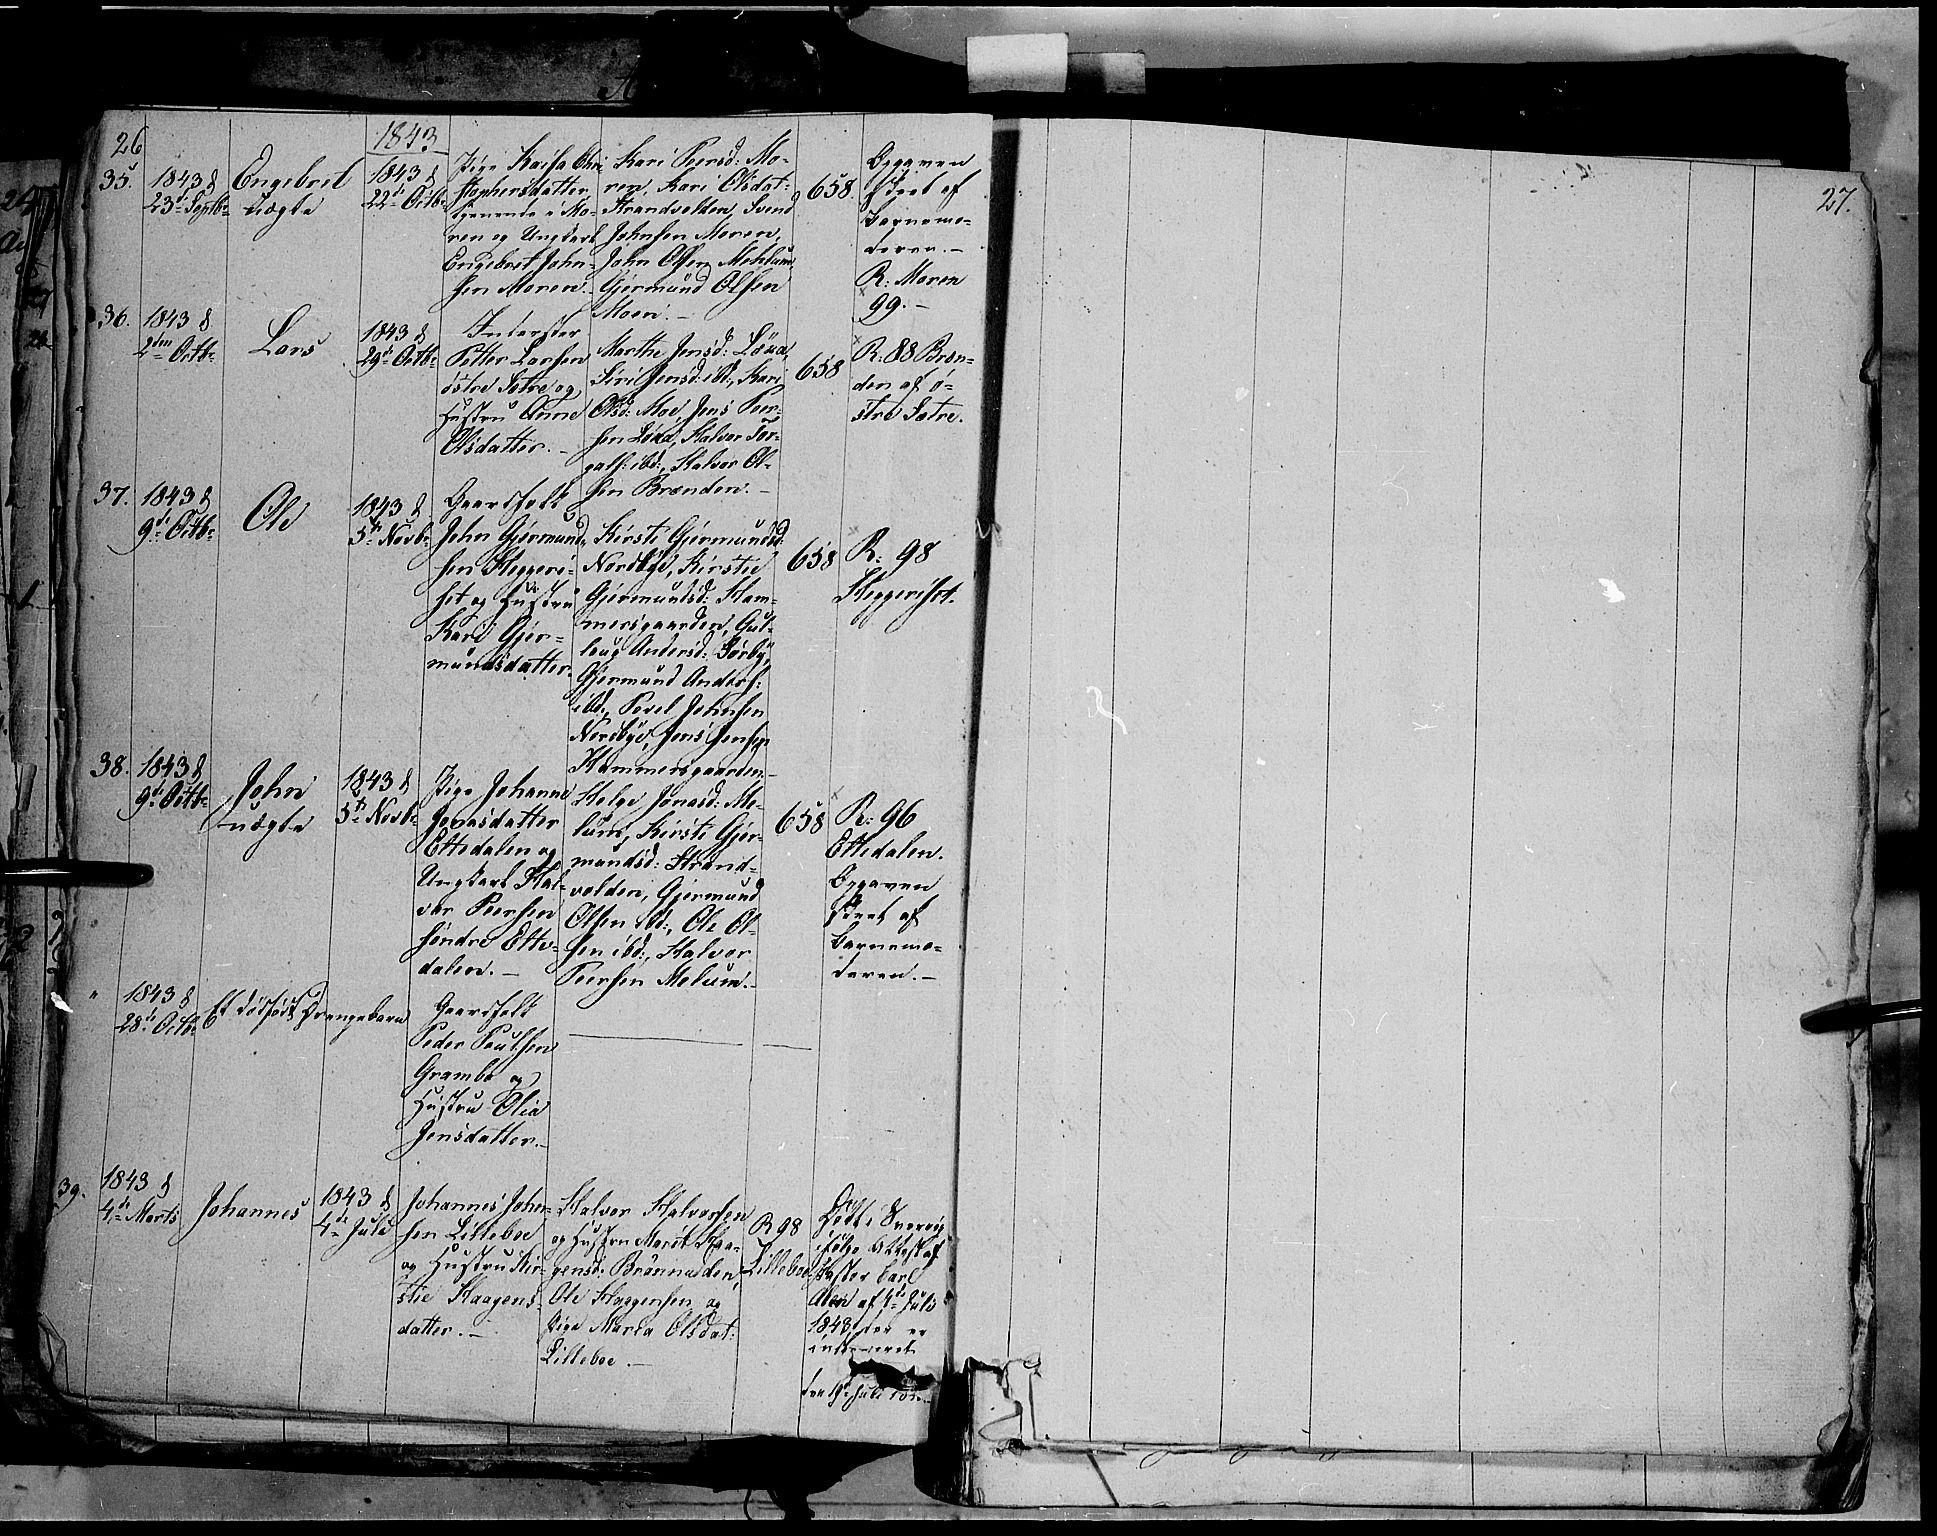 26
1843
35.
1843 d
23de Septbr
Engebret
uægte
1843 d
22de Octbr
Pige Kaisa Chri
stophersdatter
tjenende i Mo-
ren og Ungkarl
Engebret John-
sen Moren.
Kari Peersd: Mo-
ren, Kari Olsdat:
Strandvolden, Svend
Johnsen Moren,
John Olsen Mehlum,
Gjermund Olsen
Moen. –
658.
Opgaven
skeet af
Barnemo-
deren. –
R: Moren
99. –
36.
1843 d
2den Octbr
Lars
1843 d
29de Octbr
Inderster
Petter Larsen
østre Sætre og
Hustru Anne
Olsdatter. –
Marthe Jensd: Løxa,
Siri Jensd: ibd:, Kari
Olsd: Moe, Jens Peer-
sen Løxa, Halvor Tør-
gals: ibd:, Halvor Ol-
sen Brænden. –
658
R: 88 Bræn-
den af ø-
stre Sætre.
37.
1843 d
9de Octbr
Ole
1843 d
5te Novbr
Gaardfolk
John Gjermund-
sen Skeggeri-
set og Hustru
Kari Gjer-
mundsdatter.
Kirsti Gjermundsd:
Nordbye, Kirstie
Gjermundsd: Ham-
mersgaarden, Gul-
laug Andersd: Sørby,
Gjermund Anders:
ibd:, Povel Johnsen
Nordbye, Jens Jensen
Hammersgaarden –
658
R: 98
Skeggeriset.
38.
1843 d
9de Octbr
John
uægte
1843 d
5te Novbr
Pige Johanne
Jonasdatter
Ettedalen og
Ungkarl Hal-
vor Peersen
søndre Ette-
dalen. –
Helge Jonasd: Me-
lum, Kirsti Gjer-
mundsd: Strand-
volden, Gjermund
Olsen ibd:, Ole Ol-
sen ibd:, Halvor
Peersen Melum. –
658
R: 96
Ettedalen.
Opgaven
skeet af
Barnemo-
deren. –
"
1843 d
28de Octbr
Et dødfødt Drengebarn
Gaardfolk
Peder Poulsen
Grambo og
Hustru Olia
Jensdatter. –
39.
1843 d
4de Marts
Johannes
1843 d
4de Juli
Johannes John-
sen Lilleboe
og Hustru Kir-
stie Haagens-
datter. –
Halvor Halvorsen
og Hustru Marit Haa-
gensd: Brönnusden,
Ole Haagensen og
Pige Maria Olsdat:
Lilleboe. –
R 98
Lilleboe
Døbt i Sverrig
ifølge Attest af
Pastor Carl
af 4de Juli
1843, der er
den 19de Juli
27.